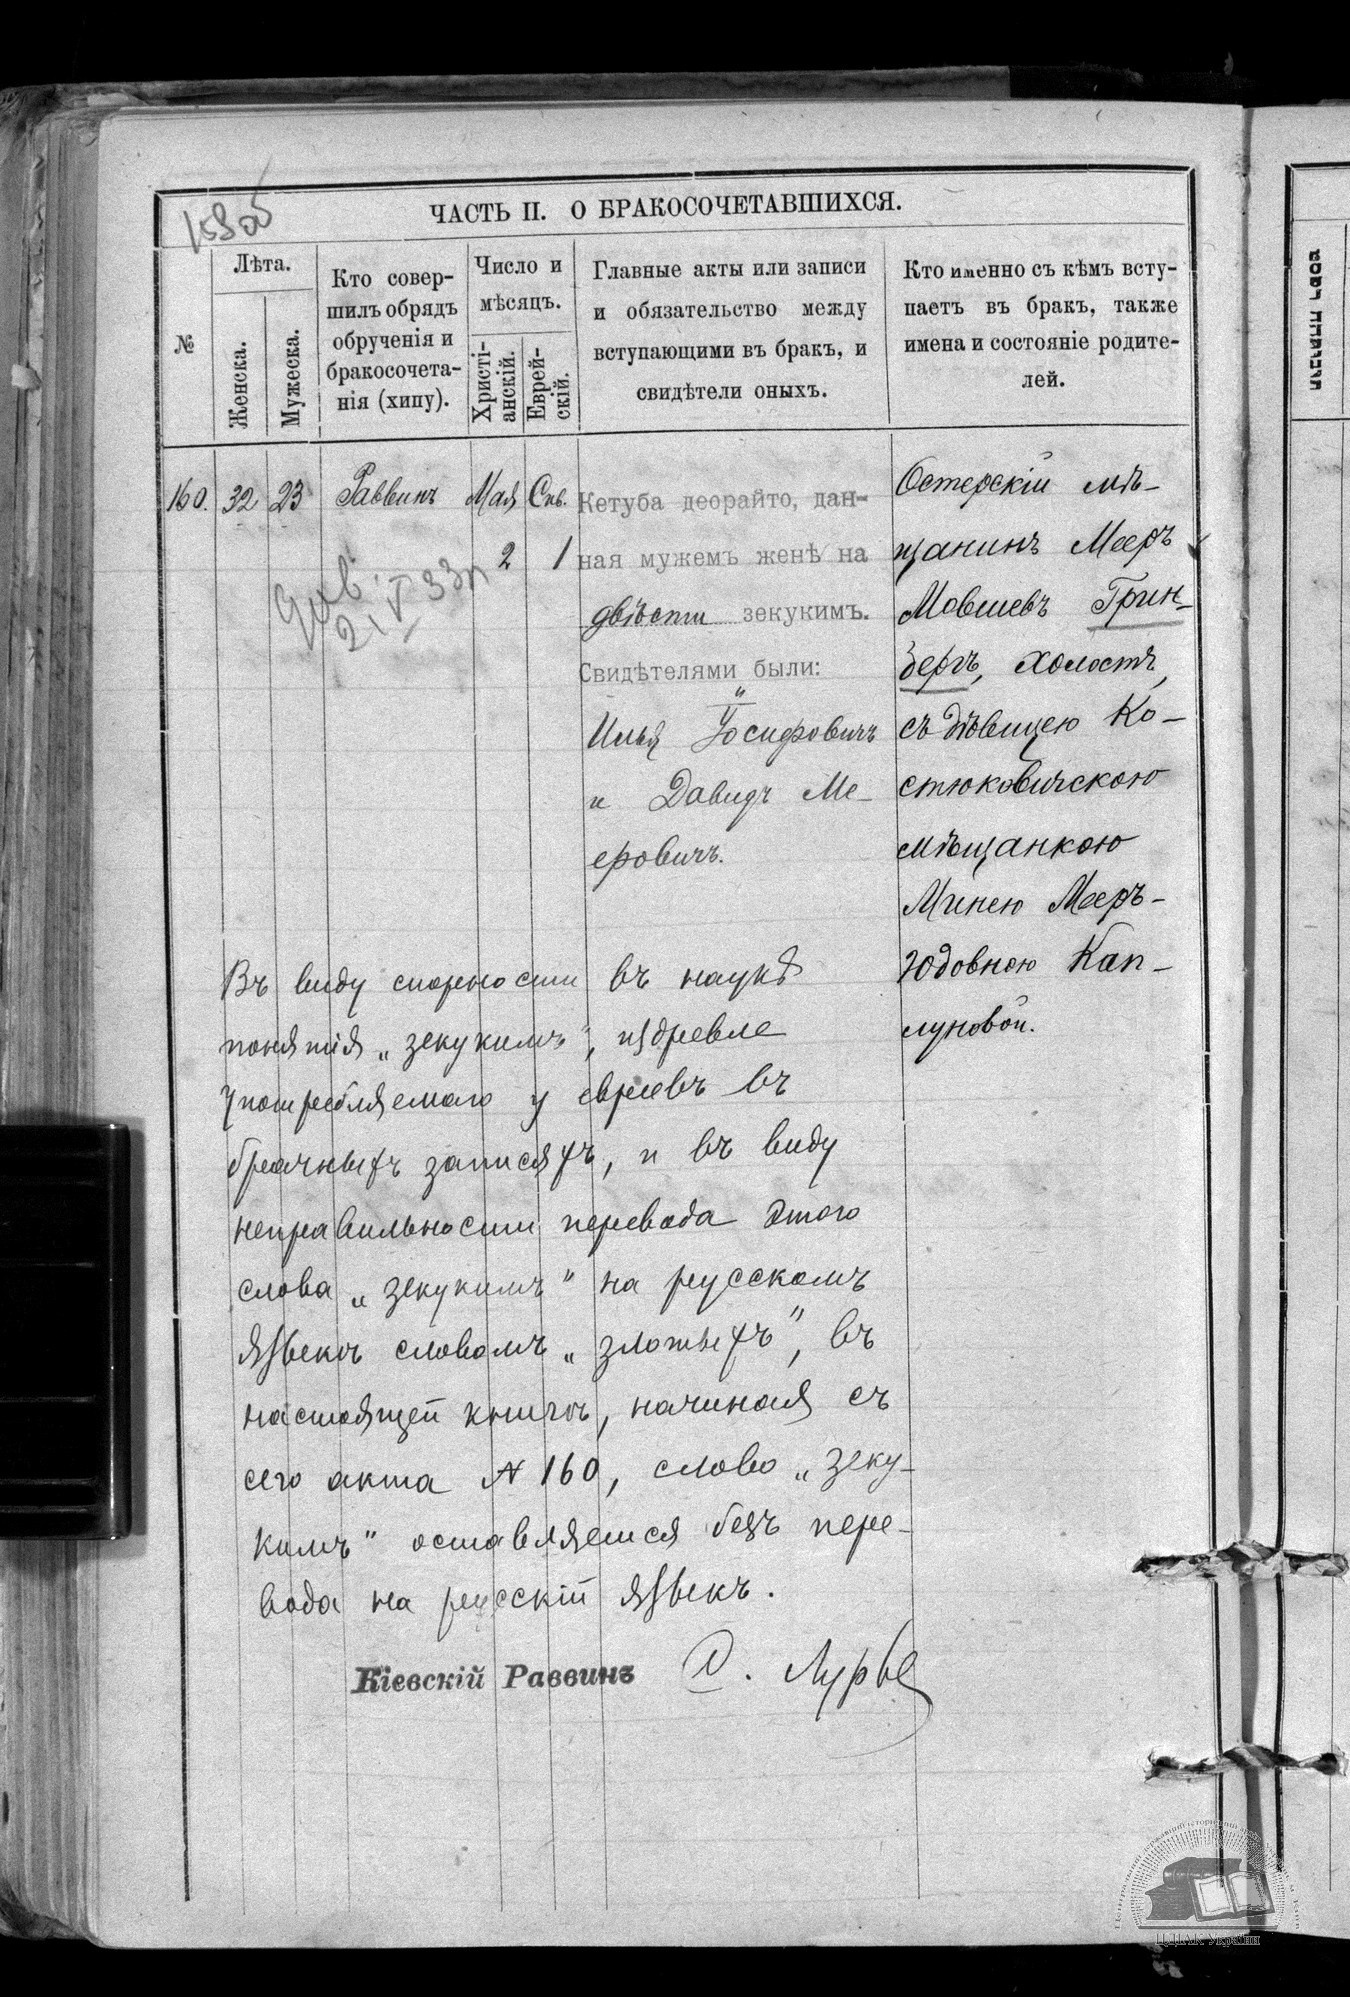 ЧАСТЬ II. О БРАКОСОЧЕТАВШИХСЯ.
№
Лѣта.
Женска.
Мужеска.
Кто совер-
шилъ обрядъ
обрученія и
бракосочета-
нія (хипу).
Число и
мѣсяцъ.
Христі-
анскій.
Еврей-
скій.
Главные акты или записи
и обязательство между
вступающими въ бракъ, и
свидѣтели оныхъ.
Кто именно съ кѣмъ всту-
паетъ въ бракъ, также
имена и состояніе родите-
лей.
160. 32 23 Раввинъ Мая 2 Сив. 1
Кетуба деорайто, дан-
ная мужемъ женѣ на
двѣсти зекукимъ.
Свидѣтелями были:
Илья Іосифовичъ
и Давидъ Ме-
еровичъ.
Остерскій мѣ-
щанинъ Мееръ
Мовшевъ Грин-
бергъ, холостъ,
съ дѣвицею Ко-
стюковичскою
мѣщанкою
Минею Мееръ-
Юдовною Кап-
луновой.
Въ виду спорности въ наукѣ
понятія „зекукимъ“, издревле
употребляемаго у евреевъ въ
брачныхъ записяхъ, и въ виду
неправильности перевода этого
слова „зекукимъ“ на русскомъ
языкѣ словомъ „злотыхъ“, въ
настоящей книгѣ, начиная съ
сего акта № 160, слово „зеку-
кимъ“ оставляется безъ пере-
вода на русскій языкъ.
Кіевскій Раввинъ С. Лурье
ЦДІАК України